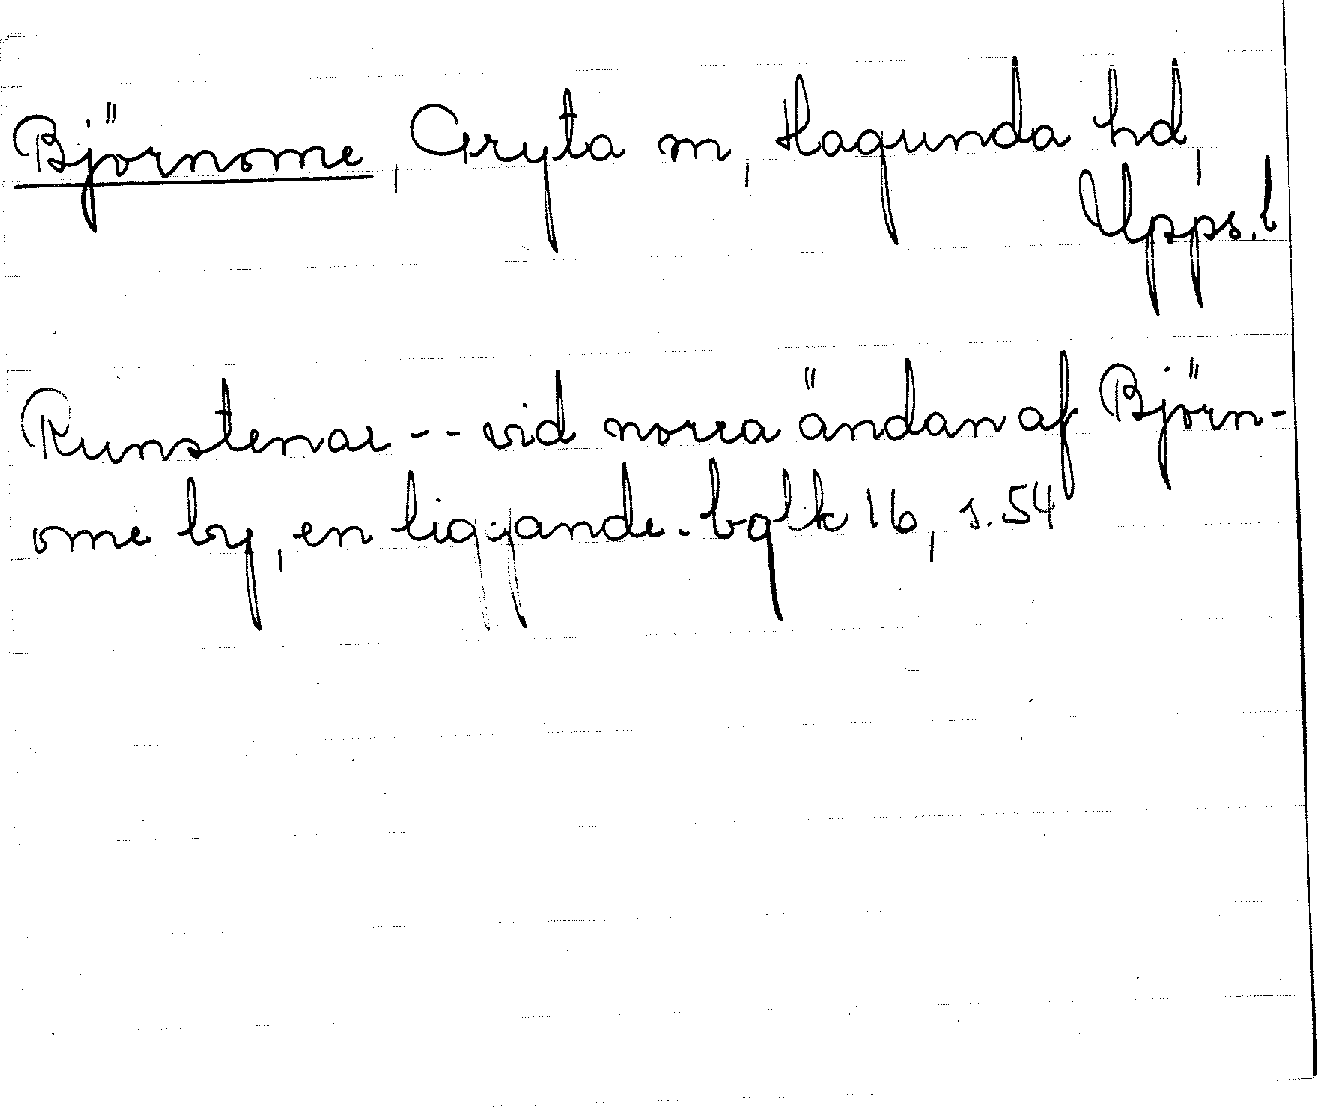 Björnome, Gryta sn, Hagunda hd,
Upps. l
Runstenar -- vid norra ändan af Björn-
ome by, en liggande. bglk 16, s. 54